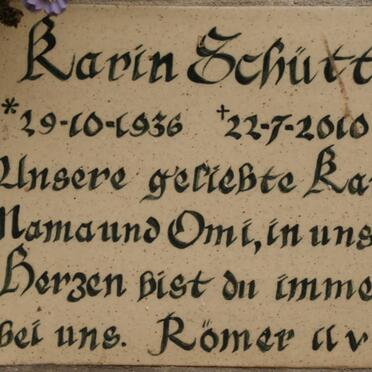 Karin Schütt
*29-10-1936 +22-7-2010
Unsere geliebte Ka
Mama und Omi, in uns
Herzen bist du imme
bei uns. Römer